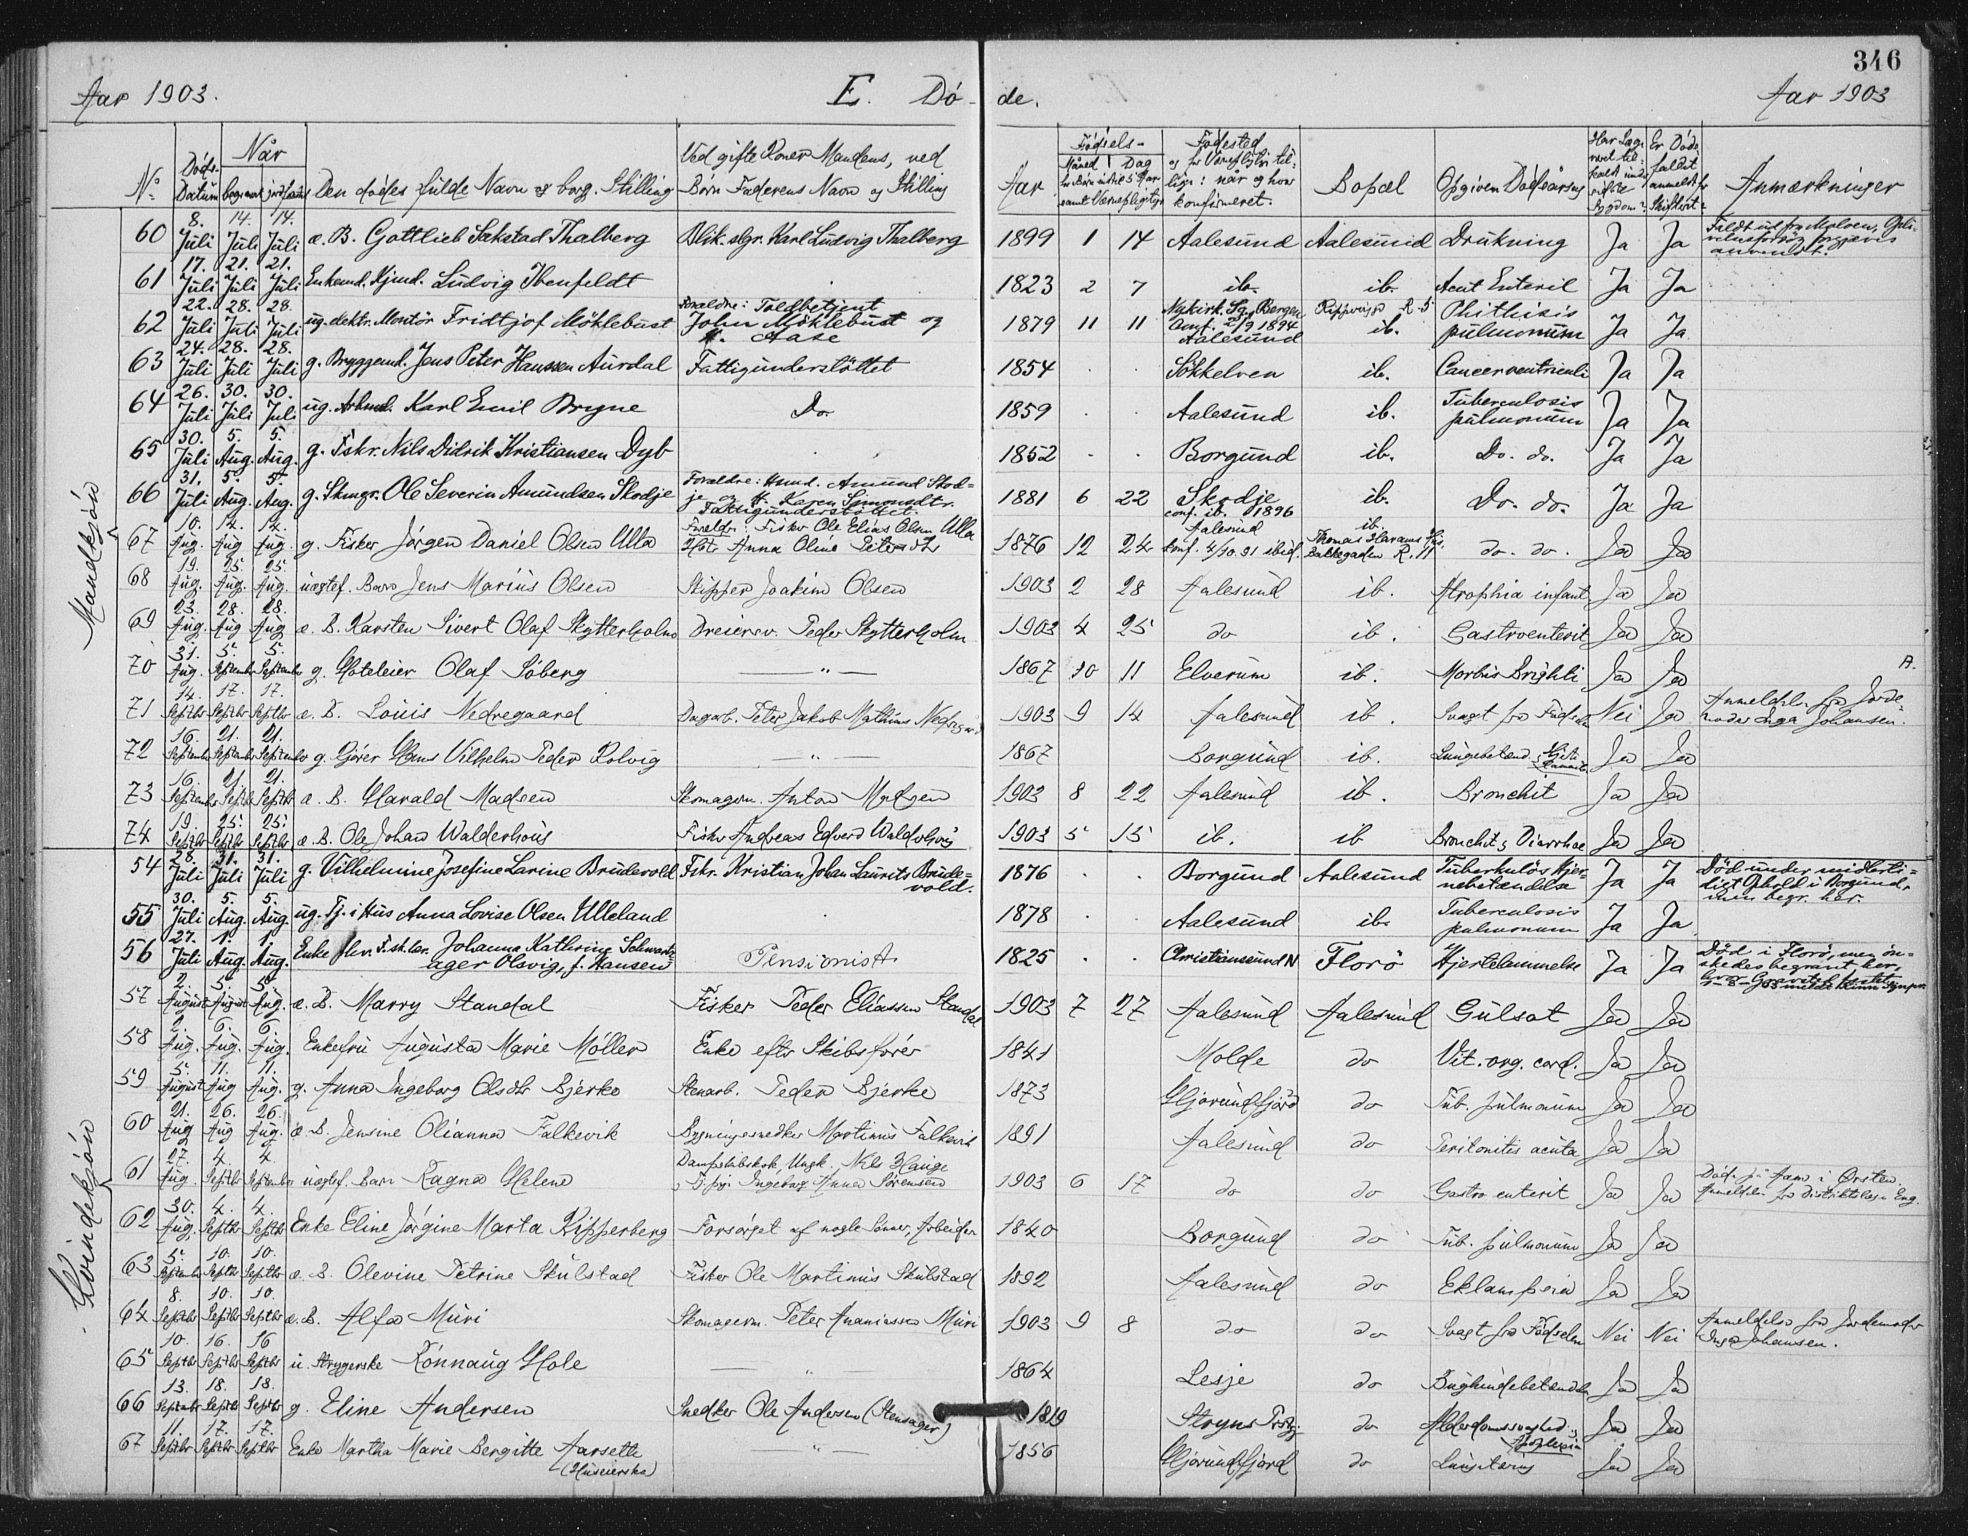 346
Aar 1903. E. Dö- de. Aar 1903
No. Döds- Datum Når begravet jordfæstet Den dödes fulde Navn og borg. Stilling Ved gifte Koner Mandens, ved Börn Faderens Navn og Stilling Aar Födsels- Måned Dag Födested og for Værnepligtige tillige: når og hvor konfirmeret. Bopæl Opgiven Dödsårsag Anmærkninger
Mandkjön
60 8. Juli 14. Juli 14. Juli æ. B. Gottlieb Sakstad Thalberg Blik.slgr. Karl Ludvig Thalberg 1899 1 14 Aalesund Aalesund Drukning Ja Ja Faldt ud fra Moloen, forgjæves anvendt.
61 17. Juli 21. Juli 21. Juli Enkemd. Kjmd. Ludvig Ibenfeldt 1823 2 7 ib. ib. Acut Enterit Ja Ja
62 22. Juli 28. Juli 28. Juli ug. elektr. Montör Fridtjof Möklebust Forældre: Toldbetjent John Möklebust og H. Aase 1879 11 11 Nykirk. Sg. Bergen Conf. 2/9 1894 Aalesund R. 5 ib. Phithisis pulmonum Ja Ja
63 24. Juli 28. Juli 28. Juli g. Bryggemd. Jens Peter Hanssen Aurdal Fattigunderstöttet 1854 . . Sökkelven ib. Cancer ventriculi Ja Ja
64 26. Juli 30. Juli 30. Juli ug. Arbmd. Karl Emil Bryne Do 1859 . . Aalesund ib. Tuberculosis pulmonum Ja Ja
65 30. Juli 5. Aug. 5. Aug. g. Fskr. Nils Didrik Kristiansen Dyb 1852 . . Borgund ib. Do. do. Ja Ja
66 31. Juli 5. Aug. 5. Aug. g. Skmgr. Ole Severin Amundsen Skodje Forældre: Hmd. Amund Skod= je og H. Karen Simonsdtr. Fattigunderstöttet. 1881 6 22 Skodje conf. ib. 1896 ib. Do. do. Ja Ja
67 10. Aug. 14. Aug 14. Aug. g. Fisker Jörgen Daniel Olsen Ulla Foreldr: Fisker Ole Elias Olsen Ulla Anna Oline Petersdtr 1876 12 24 Aalesund konf. 4/10.91 ibid. ib. Thomas Harams Hs. Bakkegaden R. 11 do. do. Ja Ja
68 19. Aug. 25. Aug. 25 Aug. uægtef. Barn Jens Marius Olsen Skipper Joakim Olsen 1903 2 28 Aalesund ib. Atrophia infant Ja Ja
69 23. Aug. 28. Aug 28. Aug æ. B. Karsten Sivert Olaf Skytterholm Dreiersv. Peder Skytterholm 1903 4 25 do ib. Gastroenterit Ja Ja
70 31. Aug. 5. September 5. September g. Hoteleier Olaf Söberg — " — 1867 10 11 Elverum ib. Morbus Brighti Ja Ja A.
71 14. Septbr 17. Septbr 17. Septbr æ. B. Louis Nedregaard Dagarb. Peter Jakob Mathias Nedregaard 1903 9 14 Aalesund ib. Svagt fra Födselen Nei Ja Anmeldelse fra Jorde= moder Inga Johansen.
72 16. September 21. September 21. September g. Gjörer Hans Vilhelm Peder Rolvig — " — 1867 Borgund ib. Lungebetænd. Ja Ja
73 16. September 21. Septbr 21. Septbr æ. B. Harald Madsen Skomagerm. Anton Madsen 1903 8 22 Aalesund ib. Bronchit Ja Ja
74 19. Septbr 25. Septbr 25. Septbr æ. B. Ole Johan Walderhoug Fisker Andreas Edvard Walderhoug 1903 5 15 ib. ib Bronchit & Diarrhoe Ja Ja
Kvindekjön
54 28. Juli 31. Juli 31. Juli g. Vilhelmine Josefine Larine Brudevold Fskr. Kristian Johan Laurits Brude= vold. 1876 . . Borgund Aalesund Tuberkulös Hjer- nebetændelse Ja Ja Död under midlerti- digt Ophold i Borgund, men begr. her.
55 30. Juli 5. Aug. 5. Aug. ug. Tj. i Hus Anna Lovise Olsen Ulleland 1878 . . Aalesund ib. Tuberculosis pulmonum Ja Ja
56 27. Juli 1. Aug. 1. Aug. Enke Johanna Kathrine Schwartz- ager Olsvig, f. Hansen Pensionist 1825 . . Christiansund N Florö Hjertelammelse Ja Ja Död i Florö, men ön- skedes begravet her,
57 2. August 5. August 5. Aug. æ. B. Marry Standal Fisker Peder Eliassen Standal 1903 7 27 Aalesund Aalesund Gulsot Ja Ja
58 2. Aug. 6. Aug. 6. Aug. Enkefru Augusta Marie Möller Enke efter Skibsförer 1841 Molde do Vit. org. cord. Ja Ja
59 5. August 11. Aug 11. Aug. g. Anna Ingeborg Olsdtr Bjerke Stenarb. Peder Bjerke 1873 Hjörundfjord do Tub. pulmonum Ja Ja
60 21. Aug 26. Aug 26. Aug. æ. B. Jensine Olianna Falkevik Bygningssnedker Martinus Falkevik 1891 Aalesund do Peritonitis acuta Ja Ja
61 27. Aug. 4. Septbr 4. September uægtef. Barn Ragna Helene Dampskibskok, Ungk. Nils Hauge & Pige Ingeborg Anna Sörensen 1903 6 17 do do Gastro enterit Ja Ja Död i Örsten. Anmeldelse fra distriktslæge Eng.
62 30. Aug. 4. Septbr 4. Septbr Enke Eline Jörgine Marta Ripperberg Forsörget af nogle Sönner, Arbeider 1840 Borgund do Tub. pulmonum Ja Ja
63 5. September 10. Septbr 10. Septbr æ. B. Olevine Petrine Skulstad Fisker Ole Martinus Skulstad 1892 Aalesund do Eklampsia Ja Ja
64 8. Septbr 10. Septbr 10. Septbr æ. B. Alfa Muri Skomagerm. Peter Ananiassen Muri 1903 9 8 do do Svagt fra Födselen Nei Nei Anmeldelse fra Jordemoder Inga Johansen.
65 10. Septbr 16. Septbr 16 Septbr u. Strygerske Rönnaug Hole — " — 1864 Lesje do Bughindebetændelse Ja Ja
66 13. September 18. Septbr 18. Septbr g. Eline Andersen Snedker Ole Andersen (Stensager) 1819 Stryns Prstgj. do Alderdomssvaghed & Apoplexia Ja Ja
67 11. Septbr 17. Septbr 17. Septbr Enke Martha Marie Bergitte Aarseth (Huseierske) " 1856 Hjörundfjord do Ja Ja